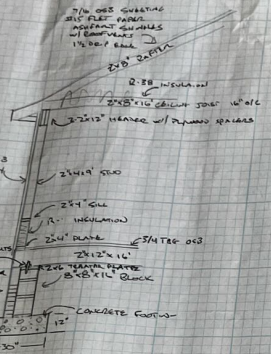 7/16 OSB SHEETING
#15 FELT PAPER
ASPHALT SHINGLES
W/ ROOF VENTS
1½ DRIP EDGE
2"x8" RAFTER
R-38 INSULATION
2"x8"x16' CEILING JOIST 16" O/C
2-2"x12" HEADER W/ PLYWOOD SPACERS
2"x4"x9' STUD
2"x4" SILL
R- INSULATION
2"x4" PLATE
3/4 T&G OSB
2"x12"x16'
2x6 PLATE
8"x8"x16" BLOCK
CONCRETE FOOTING
12"
30"